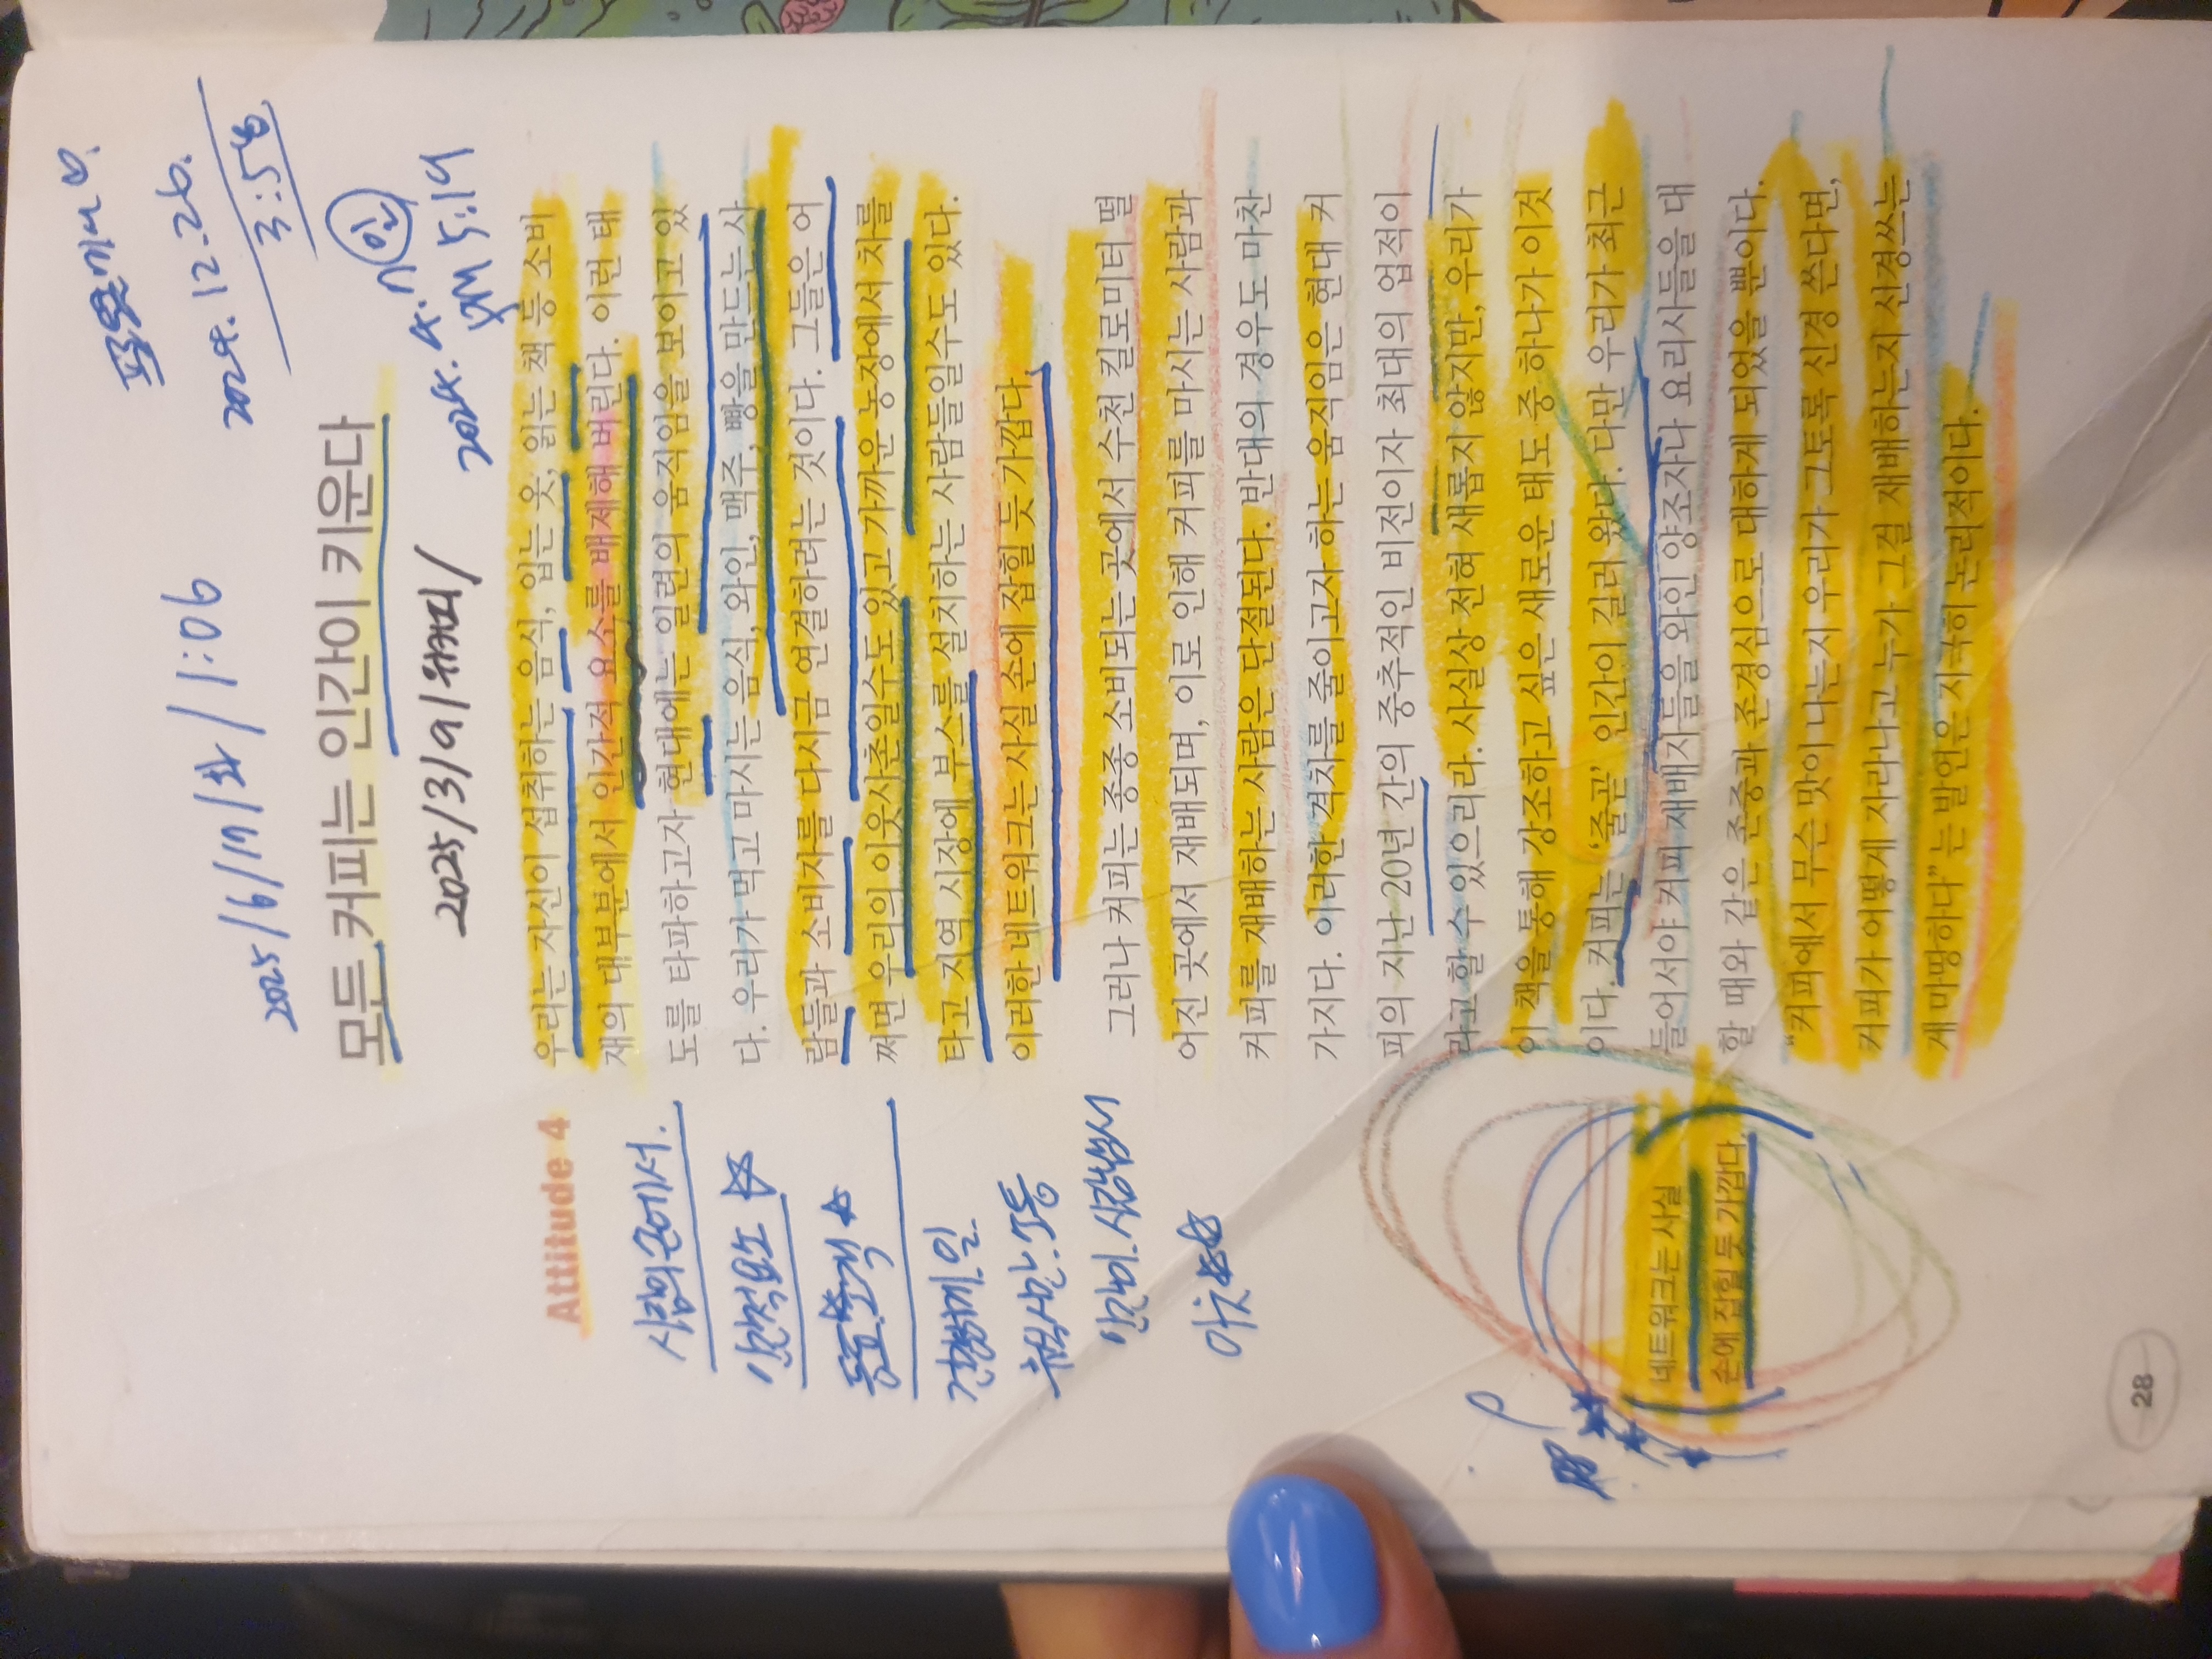 2024.12.26.
3:58
2025/6/17/화/1:06
모든 커피는 인간이 키운다
2024. 4. 7 일
pm 5:19
2025/3/9/
Attitude 4
우리는 자신이 섭취하는 음식, 입는 옷, 읽는 책 등 소비
재의 대부분에서 인간적 요소를 배제해 버린다. 이런 태
도를 타파하고자 현대에는 일련의 움직임을 보이고 있
다. 우리가 먹고 마시는 음식, 와인, 맥주, 빵을 만드는 사
람들과 소비자를 다시금 연결하려는 것이다. 그들은 어
쩌면 우리의 이웃사촌일수도 있고 가까운 농장에서 차를
타고 지역 시장에 부스를 설치하는 사람들일수도 있다.
이러한 네트워크는 사실 손에 잡힐 듯 가깝다.
그러나 커피는 종종 소비되는 곳에서 수천 킬로미터 떨
어진 곳에서 재배되며, 이로 인해 커피를 마시는 사람과
커피를 재배하는 사람은 단절된다. 반대의 경우도 마찬
가지다. 이러한 격차를 줄이고자 하는 움직임은 현대 커
피의 지난 20년 간의 중추적인 비전이자 최대의 업적이
라고 할 수 있으리라. 사실상 전혀 새롭지 않지만, 우리가
이 책을 통해 강조하고 싶은 새로운 태도 중 하나가 이것
이다. 커피는 ‘줄곧’ 인간이 길러 왔다. 다만 우리가 최근
들어서야 커피 재배자들을 와인 양조자나 요리사들을 대
할 때와 같은 존중과 존경심으로 대하게 되었을 뿐이다.
“커피에서 무슨 맛이 나는지 우리가 그토록 신경 쓴다면,
커피가 어떻게 자라나고 누가 그걸 재배하는지 신경쓰는
게 마땅하다”는 발언은 지극히 논리적이다.
인간적요소
이웃
네트워크는 사실
손에 잡힐 듯 가깝다.
28